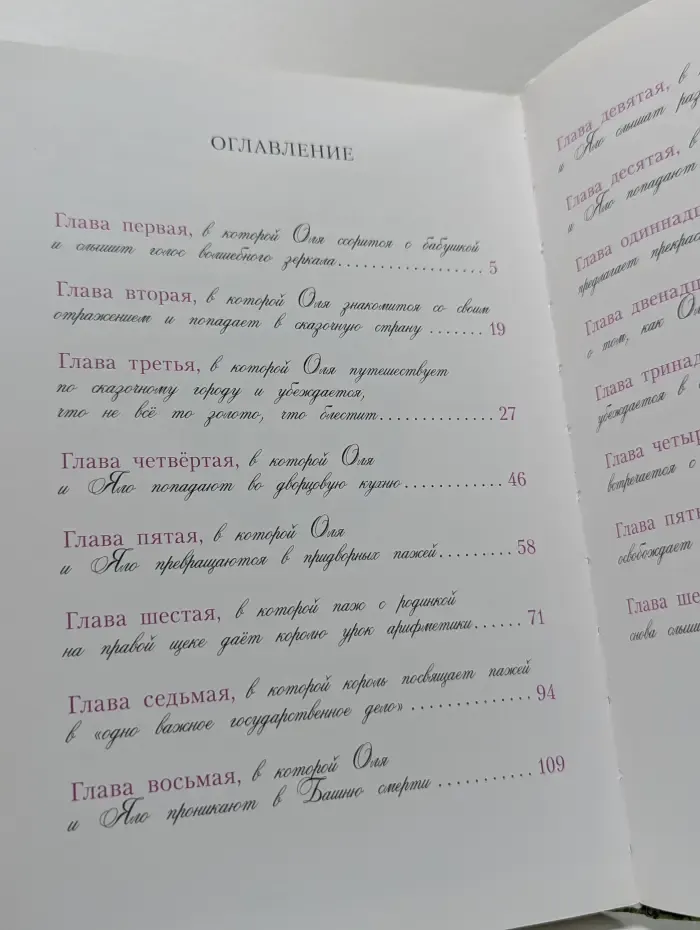 ОГЛАВЛЕНИЕ
Глава первая, в которой Оля ссорится с бабушкой
и слышит голос волшебного зеркала.................. 5
Глава вторая, в которой Оля знакомится со своим
отражением и попадает в сказочную страну ....... 19
Глава третья, в которой Оля путешествует
по сказочному городу и убеждается,
что не всё то золото, что блестит.............. 27
Глава четвёртая, в которой Оля
и Яло попадают во дворцовую кухню............ 46
Глава пятая, в которой Оля
и Яло превращаются в придворных пажей......... 58
Глава шестая, в которой паж с родинкой
на правой щеке даёт королю урок арифметики...... 71
Глава седьмая, в которой король посвящает пажей
в «одно важное государственное дело» ............. 94
Глава восьмая, в которой Оля
и Яло проникают в Башню смерти ........... 109
Глава девятая, в
и Яло слышат
Глава десятая, в
и Яло попадают
Глава
предлагает
Глава
о том, как
Глава
убеждается в
Глава
встречается с
Глава
освобождает
Глава
снова